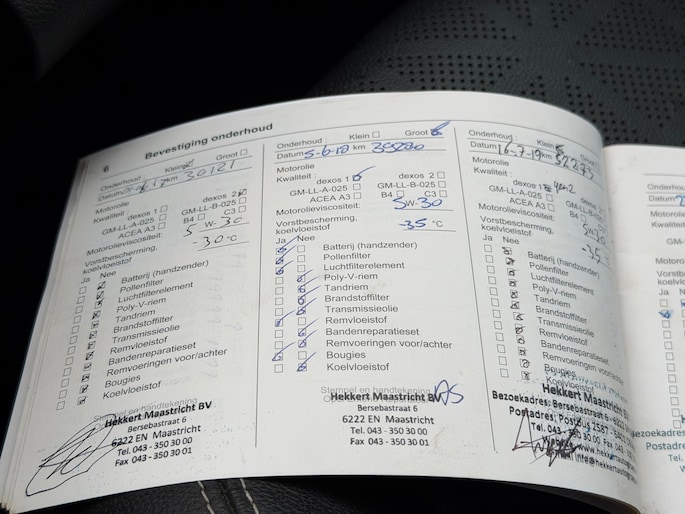 6
Bevestiging onderhoud
Onderhoud: Klein Groot
Datum km 30121
Motorolie
Kwaliteit dexos 1 dexos 2
GM-LL-A-025 GM-LL-B-025
ACEA A3 B4 C3
Motorolieviscositeit: 5 W-30
Vorstbescherming,
koelvloeistof -30 °C
Ja Nee
Batterij (handzender)
Pollenfilter
Luchtfilterelement
Poly-V-riem
Tandriem
Brandstoffilter
Transmissieolie
Remvloeistof
Bandenreparatieset
Remvoeringen voor/achter
Bougies
Koelvloeistof
Stempel en handtekening
Hekkert Maastricht BV
Bersebastraat 6
6222 EN Maastricht
Tel. 043 - 350 30 00
Fax 043 - 350 30 01
Onderhoud: Klein Groot
Datum 5-6-18 km
Motorolie
Kwaliteit: dexos 1 dexos 2
GM-LL-A-025 GM-LL-B-025
ACEA A3 B4 C3
Motorolieviscositeit: 5W-30
Vorstbescherming,
koelvloeistof -35 °C
Ja Nee
Batterij (handzender)
Pollenfilter
Luchtfilterelement
Poly-V-riem
Tandriem
Brandstoffilter
Transmissieolie
Remvloeistof
Bandenreparatieset
Remvoeringen voor/achter
Bougies
Koelvloeistof
Stempel en handtekening
Hekkert Maastricht BV
Bersebastraat 6
6222 EN Maastricht
Tel. 043 - 350 30 00
Fax 043 - 350 30 01
Onderhoud: Klein Groot
Datum 16-7-19 km 52273
Motorolie
Kwaliteit: dexos 1
GM-LL-A-025 GM-LL-B-025
ACEA A3 B4
Motorolieviscositeit: 5W-30
Vorstbescherming,
koelvloeistof -35
Ja Nee
Batterij (handzender)
Pollenfilter
Luchtfilterelement
Poly-V-riem
Tandriem
Brandstoffilter
Transmissieolie
Remvloeistof
Bandenreparatieset
Remvoeringen voor/achter
Bougies
Koelvloeistof
Hekkert Maastricht BV
Bezoekadres: Bersebastraat 6
Postadres: Postbus 2587
Tel. 043 - 350 30 00
Onderhoud
Datum
Motorolie
Kwaliteit
Ja